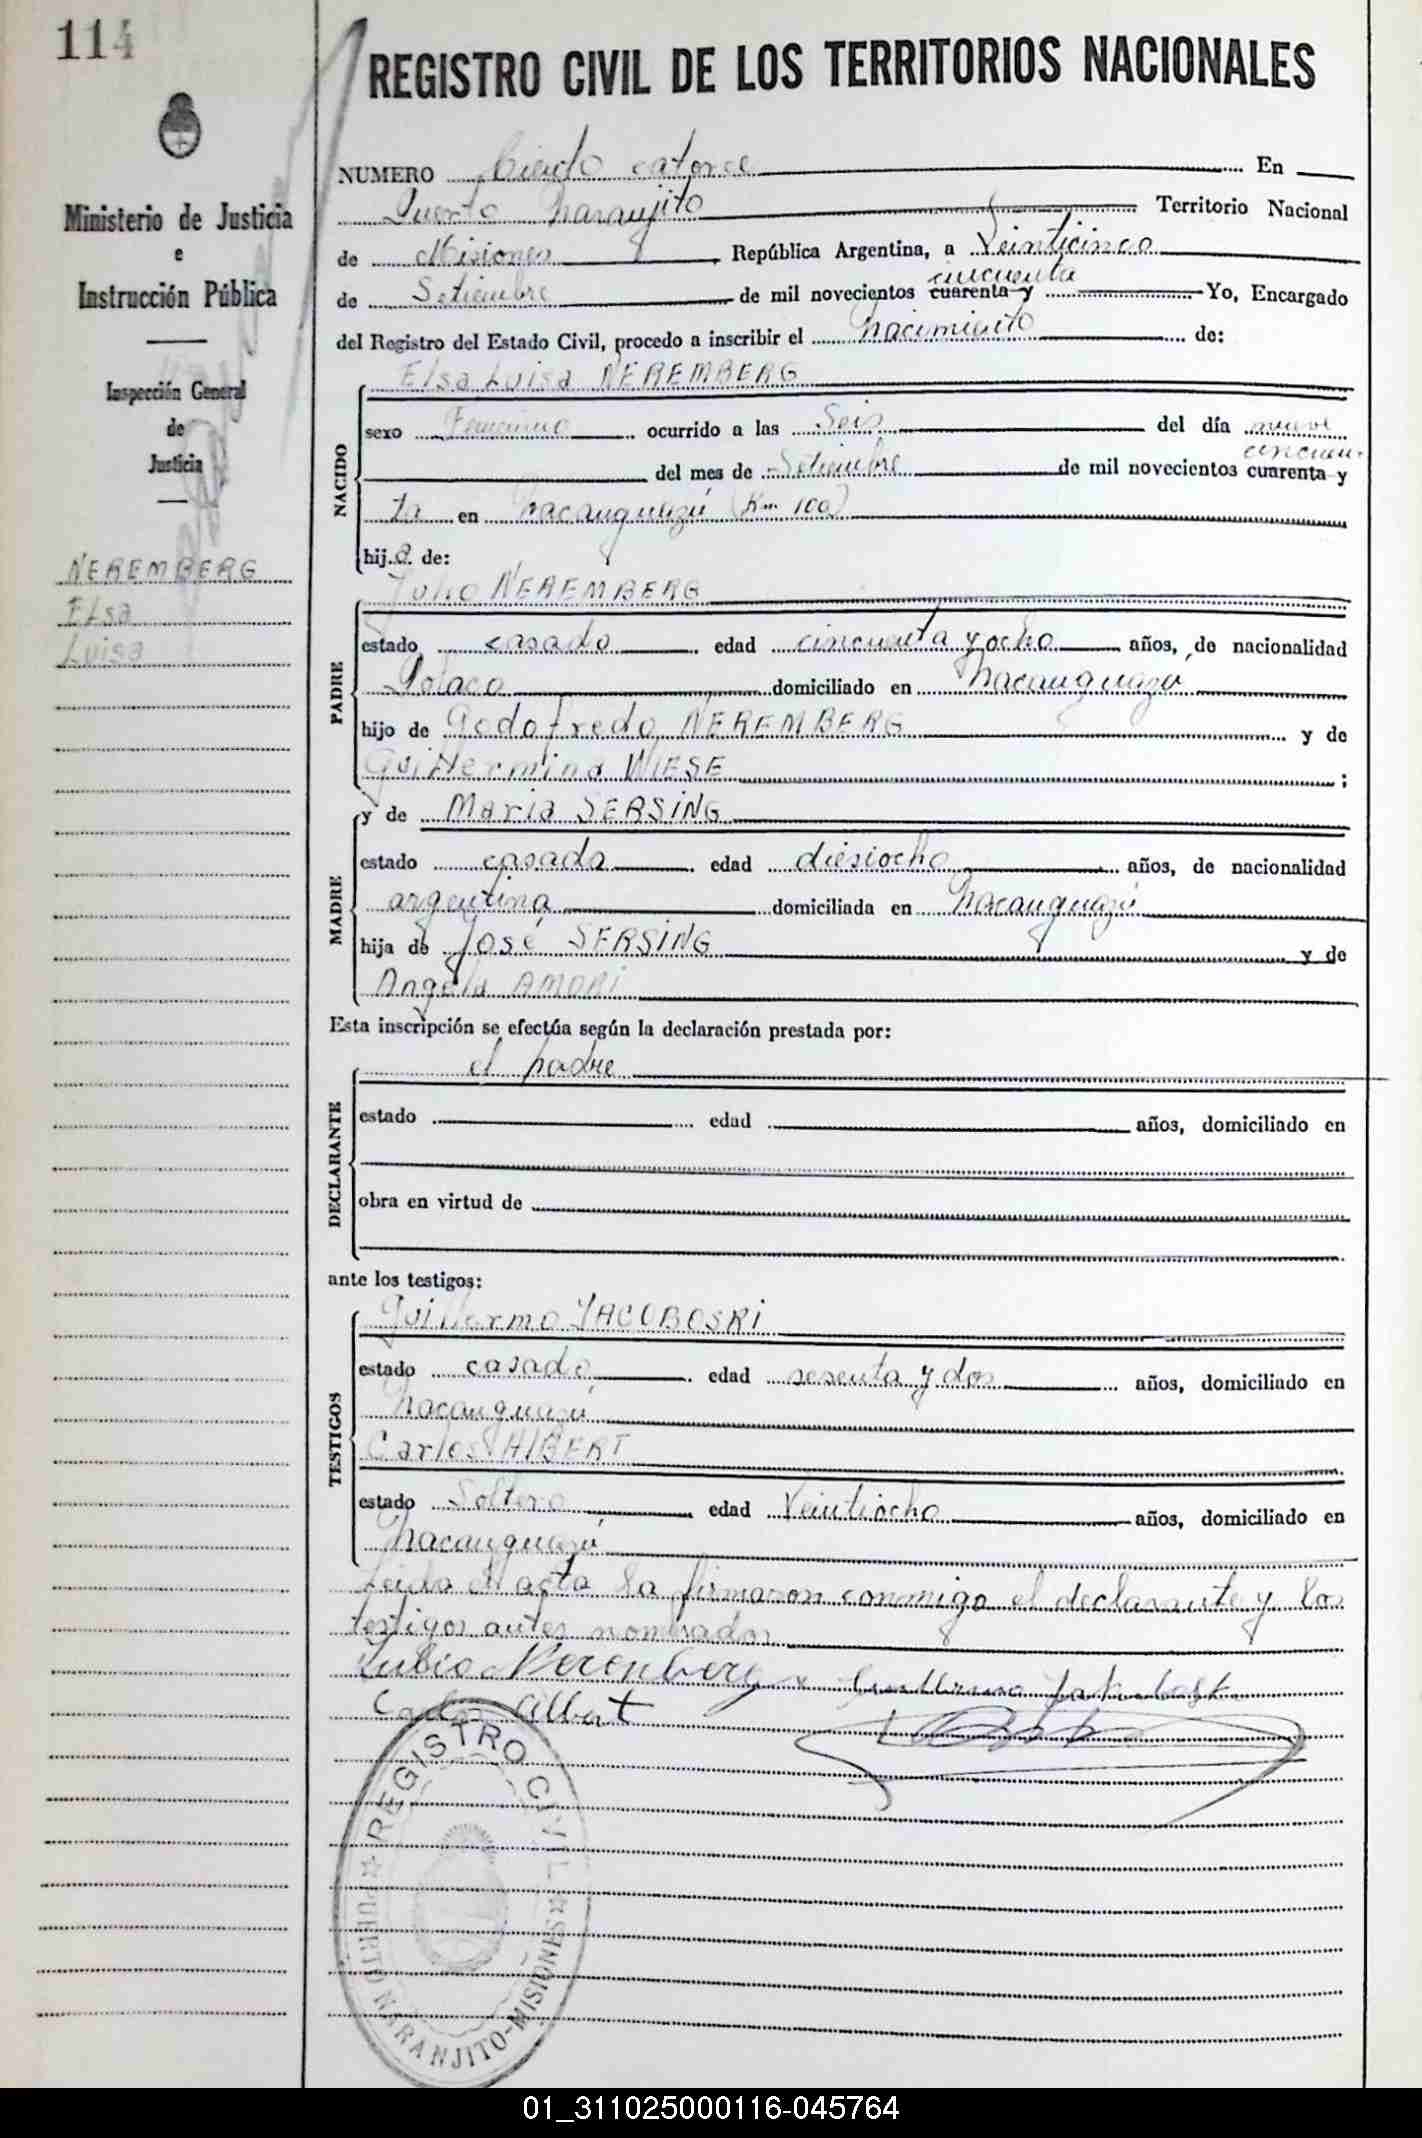 114
REGISTRO CIVIL DE LOS TERRITORIOS NACIONALES
Ministerio de Justicia
e
Instrucción Pública
Inspección General
de
Justicia
NEREMBERG
Elsa
Luisa
NUMERO Ciento catorce En
Puerto Naranjito Territorio Nacional
de Misiones República Argentina, a Veinticinco
cincuenta
de Setiembre de mil novecientos cuarenta y Yo, Encargado
del Registro del Estado Civil, procedo a inscribir el nacimiento de:
NACIDO
Elsa Luisa NEREMBERG
sexo Femenino ocurrido a las Seis del día nueve
cincuen
del mes de Setiembre de mil novecientos cuarenta y
ta en Ñacanguazú (Km 100)
hija de:
PADRE
Julio NEREMBERG
estado casado edad cincuenta y ocho años, de nacionalidad
Polaca domiciliado en Ñacanguazú
hijo de Godofredo NEREMBERG y de
Guillermina WIESE ;
MADRE
y de Maria SERSING
estado casada edad diesiocho años, de nacionalidad
argentina domiciliada en Ñacanguazú
hija de José SERSING y de
Angela AMORI
Esta inscripción se efectúa según la declaración prestada por:
DECLARANTE
el padre
estado edad años, domiciliado en
obra en virtud de
ante los testigos:
TESTIGOS
Guillermo JACOBOSKI
estado casado edad sesenta y dos años, domiciliado en
Ñacanguazú
Carlos HIBERT
estado Soltero edad Veintiocho años, domiciliado en
Ñacanguazú
Leida el acta la firmaron conmigo el declarante y los
testigos antes nombrados
Nerenberg
Albert
REGISTRO CIVIL
PUERTO NARANJITO-MISIONES
01_311025000116-045764